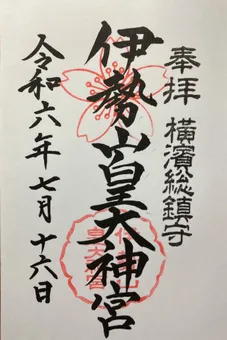 奉拝 横濱總鎮守
伊勢山皇大神宮
令和六年七月十六日